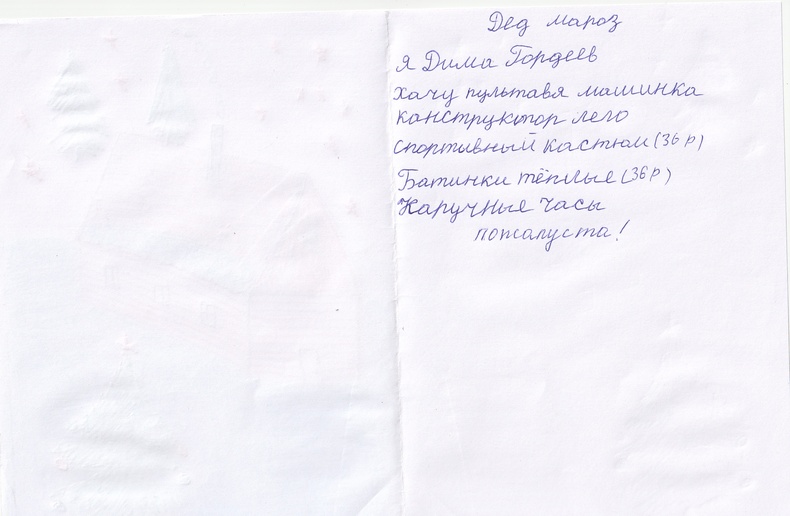 Дед мароз
я Дима Гордеев
хачу пультавя машинка
канструктор лего
спортивный кастюм (36 р)
Батинки тёплые (36 р)
Наручные часы
пожалуста!